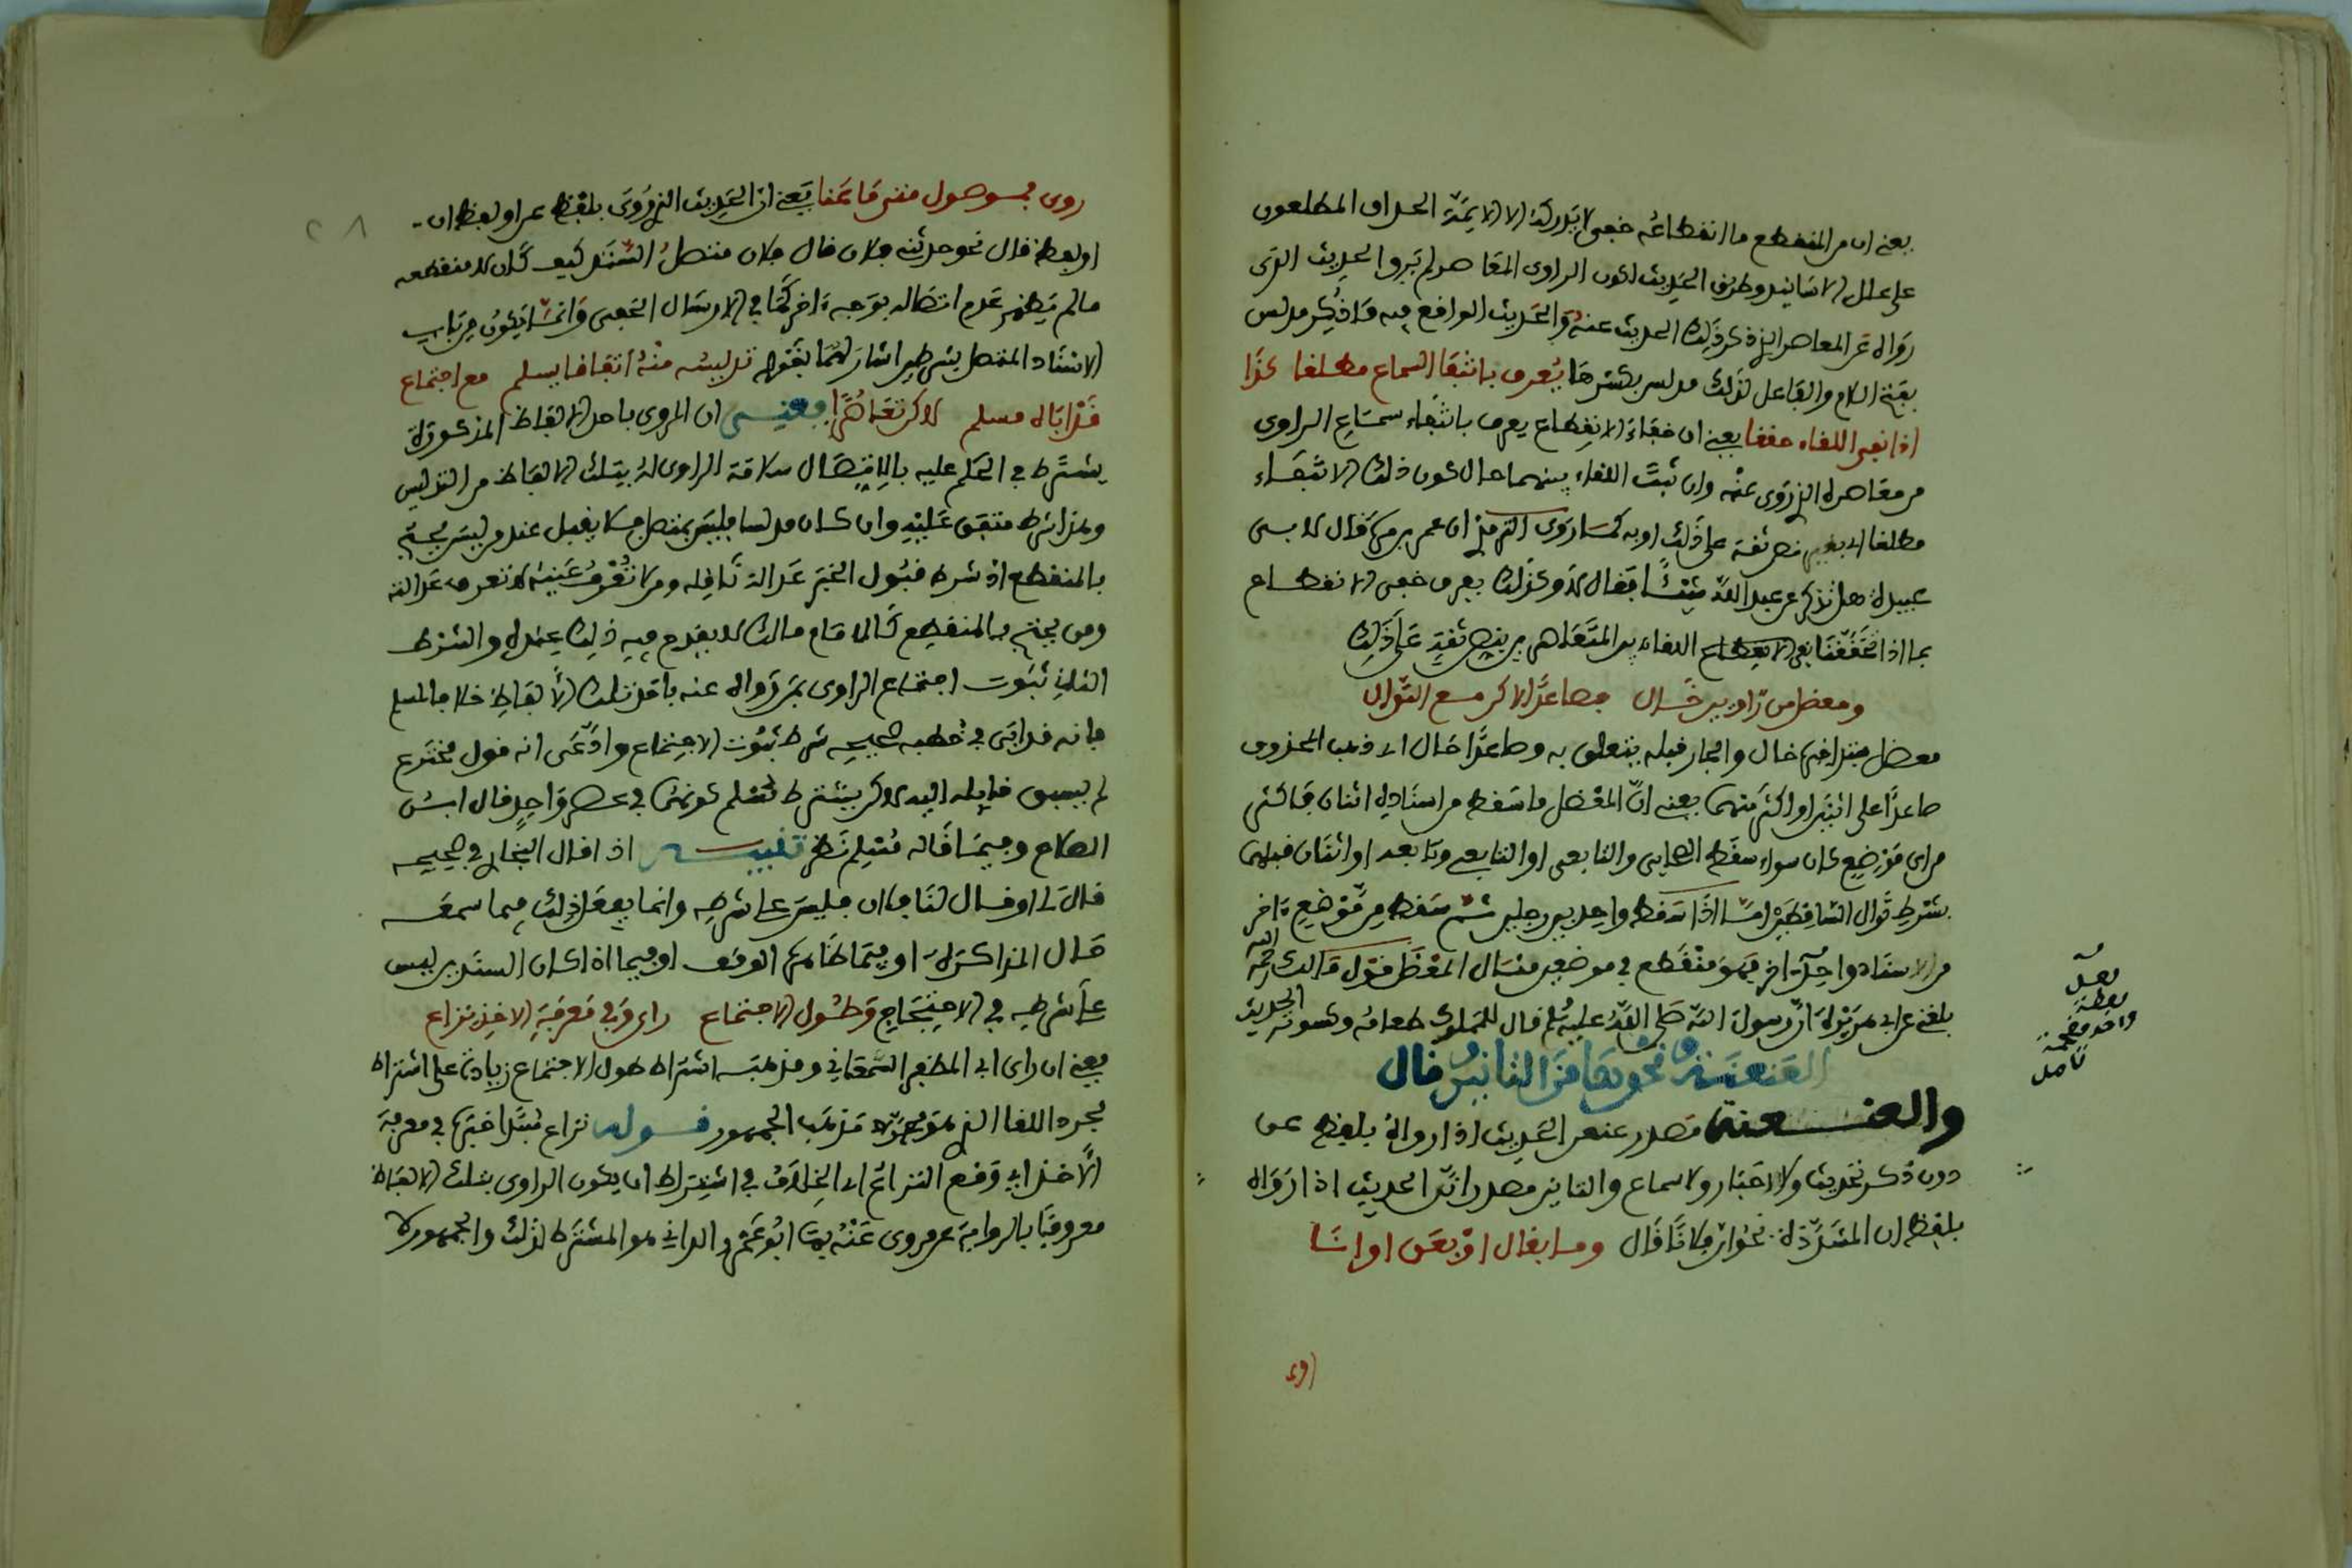 يعنى ان من المنقطع ما انقطاعه خفى لا يدركه الا الايمة الحذاق المطلعون
على علل الاسانيد وطرق الحديث لكون الراوى المعاصر لم يرو الحديث الذى
رواه عن المعاصر الذى ذكر ذلك الحديث عنه والحديث الواقع فيه ما ذكر مدلس
بفتح اللام والفاعل لذلك مدلس بكسرها يعرف بانتفا السماع مطلقا كذا
اذا نفى اللقاء حققا يعنى ان خفاء الانقطاع يعرف بانتفاء سماع الراوى
من معاصره الذى روى عنه وان ثبت اللقاء بينهما حال كون ذلك الانتفاء
مطلقا اى بغير نص ثقة على ذلك او به كما روى الترمذى ان عمرو بن مرة قال لابى
عبيدة هل تذكر عن عبد الله شيئا فقال لا وكذلك يعرف خفى الانقطاع
بما اذا تحققنا نفى اللقاء بين المتعاصرين بنص ثقة على ذلك
ومعضل من راويين خال فصاعدا لاكن مع التوال
معضل مبتدا خبره خال والجار قبله يتعلق به وصاعدا حال اى ذهب المحذوف
صاعدا على اثنين او اكثر منهما يعنى ان المعضل ما سقط من اسناده اثنان فاكثر
من اى موضع كان سواء سقط الصحابى والتابعى او التابعى وتابعه او اثنان قبلهما
بشرط توال الساقطين اما اذا سقط واحد بين رجلين ثم سقط من موضع ءاخر
من الاسناد واحد ءاخر فهو منقطع فى موضعين مثال المعضل قول مالك رحمه الله
بلغنى عن ابى هريرة ان رسول الله صلى الله عليه وسلم قال للمملوك طعامه وكسوته الحديث
لعل
لفظة
واحد مقحمة
تامل
العنعنة ونحوها من التانين وقال
والعنعنة مصدر عنعن الحديث اذا رواه بلفظ عن
دون ذكر تحديث ولا اخبار ولا سماع والتانين مصدر انن الحديث اذا رواه
بلفظ ان المشددة نحو ان فلانا قال وما بقال او بعن او انا
روى
روى فموصول متى ما عنا يعنى ان الحديث الذى روى بلفظ عن او لفظ ان
او لفظ قال نحو حدثنى فلان قال فلان متصل السند كيف كان لا منقطعه
ما لم يظهر عدم اتصاله بوجه ءاخر كما فى الارسال الخفى وانما يكون من باب
الاسناد المتصل بشرطين اشار لهما بقوله تدليسه منه اتفاقا يسلم مع اجتماع
قد اباه مسلم لاكن تعاصرا فمعنى ان المروى باحد الالفاظ المذكورة
يشترط فى الحكم عليه بالاتصال سلامة الراوى له بتلك الالفاظ من التدليس
وهذا شرط متفق عليه وان كان مدلسا فليس بمتصل فلا يقبل عند من ليس يحتج
بالمنقطع اذ شرط قبول الخبر عدالة ناقله ومن لا تعرف عينه لا تعرف عدالته
ومن يحتج بالمنقطع كالامام مالك لا يقدح فيه ذلك عنده والشرط
الثانى ثبوت اجتماع الراوى بمن رواه عنه باحد تلك الالفاظ خلافا لمسلم
فانه قد ابى فى خطبه صحيحه شرط ثبوت الاجتماع وادعى انه قول مخترع
لم يسبق قايله اليه لاكن يشترط مسلم كونهما فى عصر واحد قال ابن
الصلاح وفيما قاله مسلم نظر تنبيه اذا قال البخارى فى صحيحه
قال لى او قال لنا فلان فليس على شرطه وانما يفعل ذلك فيما سمعه
حال المذاكرة او فيما ظاهره الوقف او فيما اذا كان السند ليس
على شرطه فى الاحتجاج وطول الاجتماع راى وفى معرفة الاخذ نزاع
يعنى ان راى ابى المظفر السمعانى ومذهبه اشتراط طول الاجتماع زيادة على اشتراط
مجرد اللقا الذى هو مذهب الجمهور قوله نزاع مبتدا خبره فى معرفة
الاخذ اى وقع النزاع اى الخلاف فى اشتراط ان يكون الراوى بتلك الالفاظ
معروفا بالرواية عن من روى عنه بها ابو عمرو الدانى هو المشترط لذلك والجمهور لا